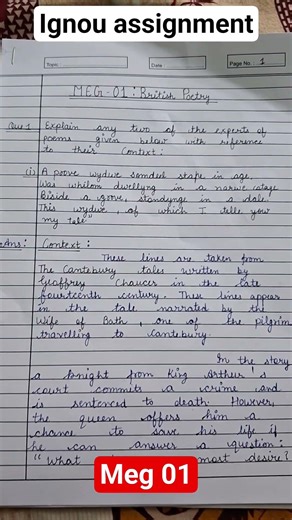 Ignou assignment
Topic:
Date:
Page No. 1
MEG-01: British Poetry
Que 1 Explain any two of the experts of
poems given below with reference
to their Context:
(i) A poore wydwe somdeel stape in age,
Was whilom dwellyng in a narwe cotage
Biside a grove, standynge in a dale
This wydwe, of which I telle yow
my tale"
Ans: Context:
These lines are taken from
The Cantebury tales written by
Geoffrey Chaucer in the late
fourteenth century. These lines appear
in the tale narrated by the
Wife of Bath, one of the pilgrim
travelling to Cantebury.
In the story
a knight from King Arthur's
court commits a crime and
is sentenced to death. However,
the queen offers him a
chance to save his life if
he can answer a question:
"What most desire?
Meg 01